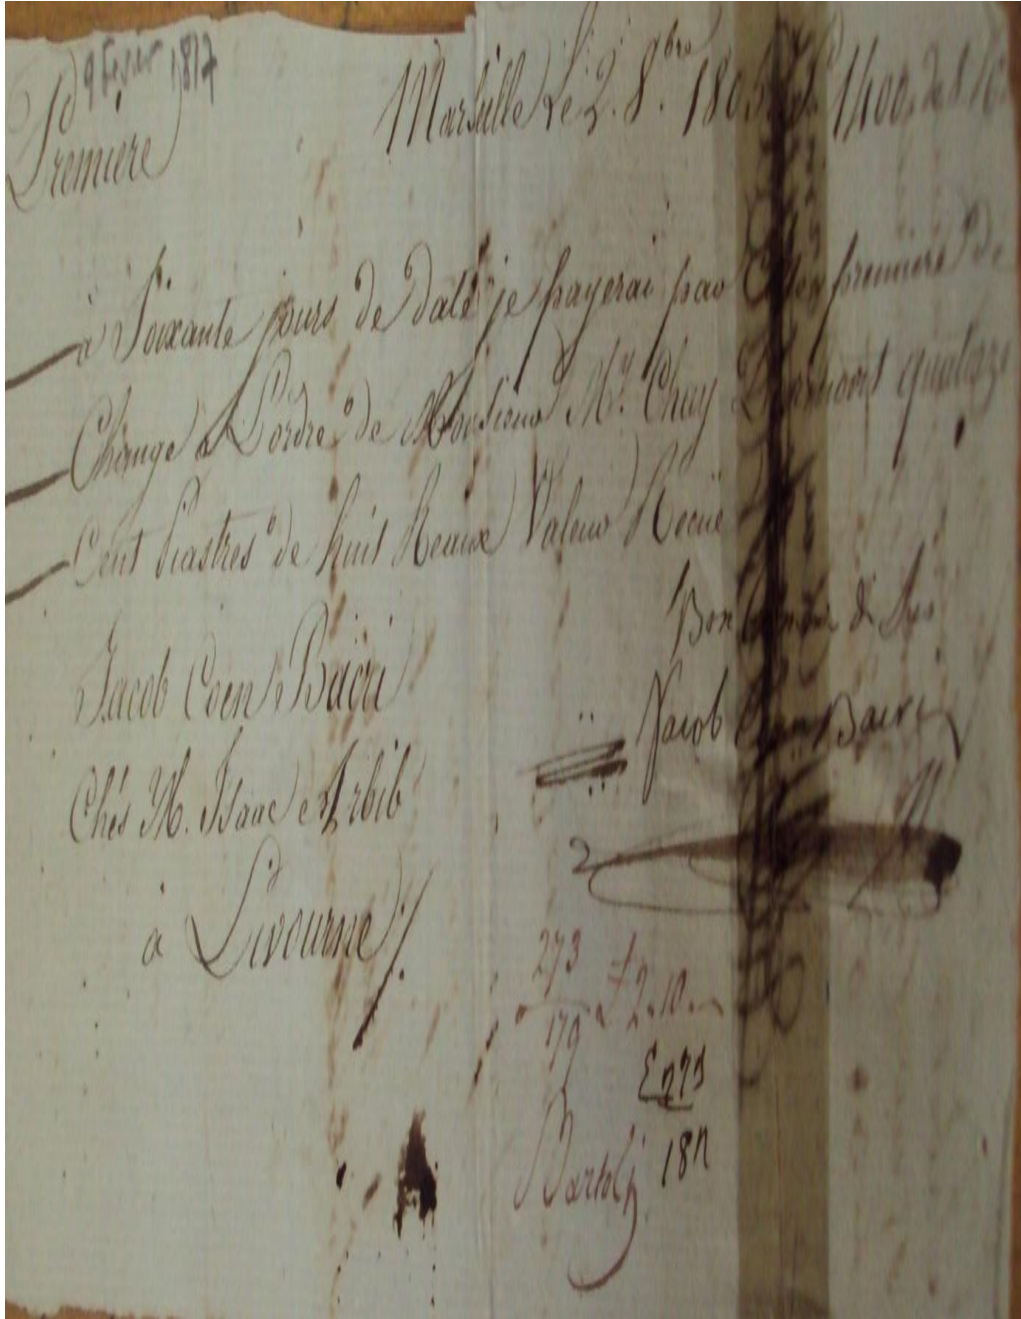 9 fevrier 1817
Première
Marseille Le 2. 8.bre 180 1400 de 8
à Soixante jours de date je payerai par première de
Change à L'ordre de Monsieur quatorze
Cent Piastres de huit Reaux Valeur Recüe
Bon
Jacob Coen Bacri
Jacob Bacri
Chés M. Isaac Arbib
à Livourne
273
179 2.10
Bartoli